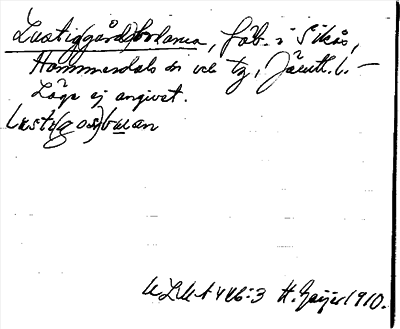 Lustig(gårds)bodarna, fäb. i Sikås,
Hammerdals sn och tg, Jämtl. l. –
Läge ej angivet.
Lusti(g os)buan
ULMA 446:3 H. Geijer 1910.